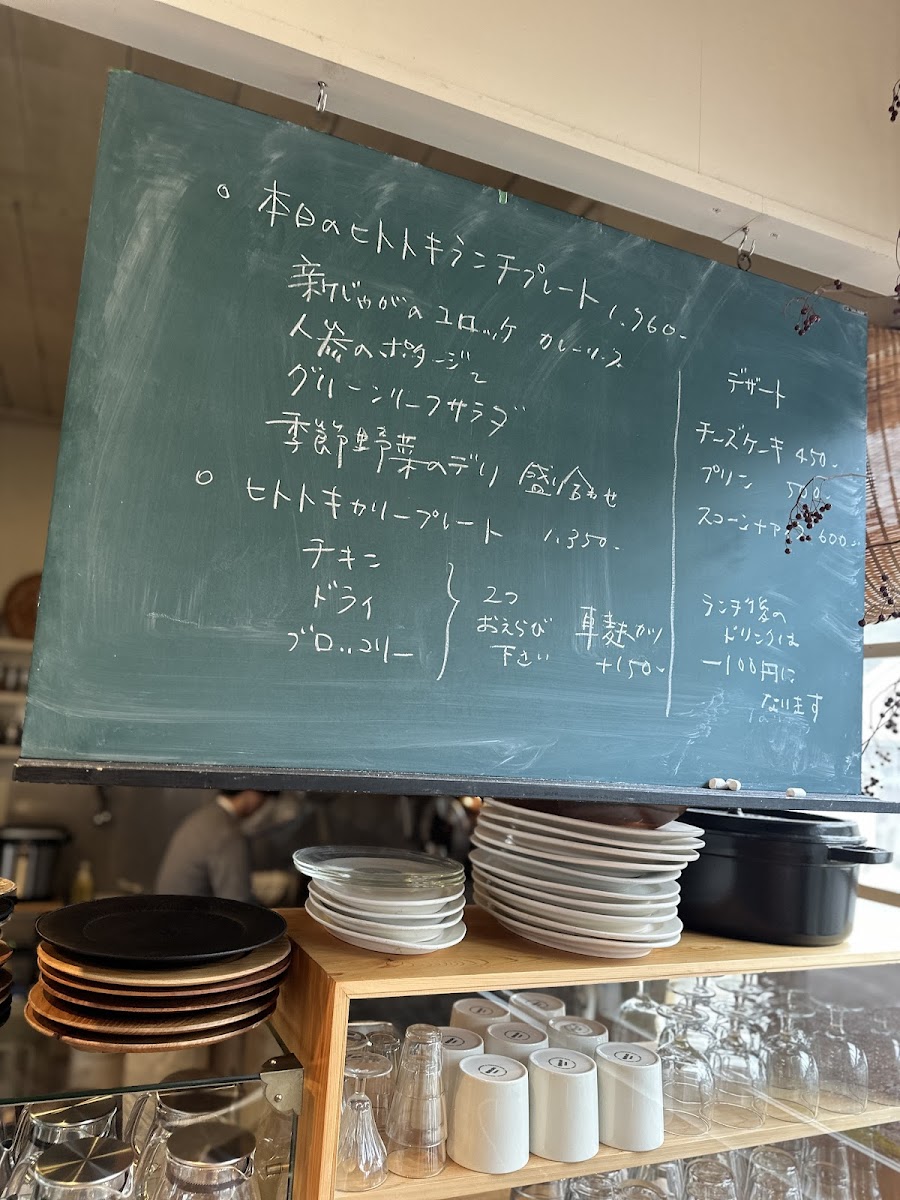 ○ 本日のヒトトキランチプレート 1,360-
新じゃがのコロッケ カレーソース
人参のポタージュ
グリーンリーフサラダ
季節野菜のデリ 盛り合わせ
○ ヒトトキカリープレート 1,350-
チキン
ドライ
ブロッコリー
2つ
おえらび
下さい
車麩カツ
+150-
デザート
チーズケーキ 450-
プリン 500-
スコーン+アイス 600-
ランチ後の
ドリンクは
-100円に
なります